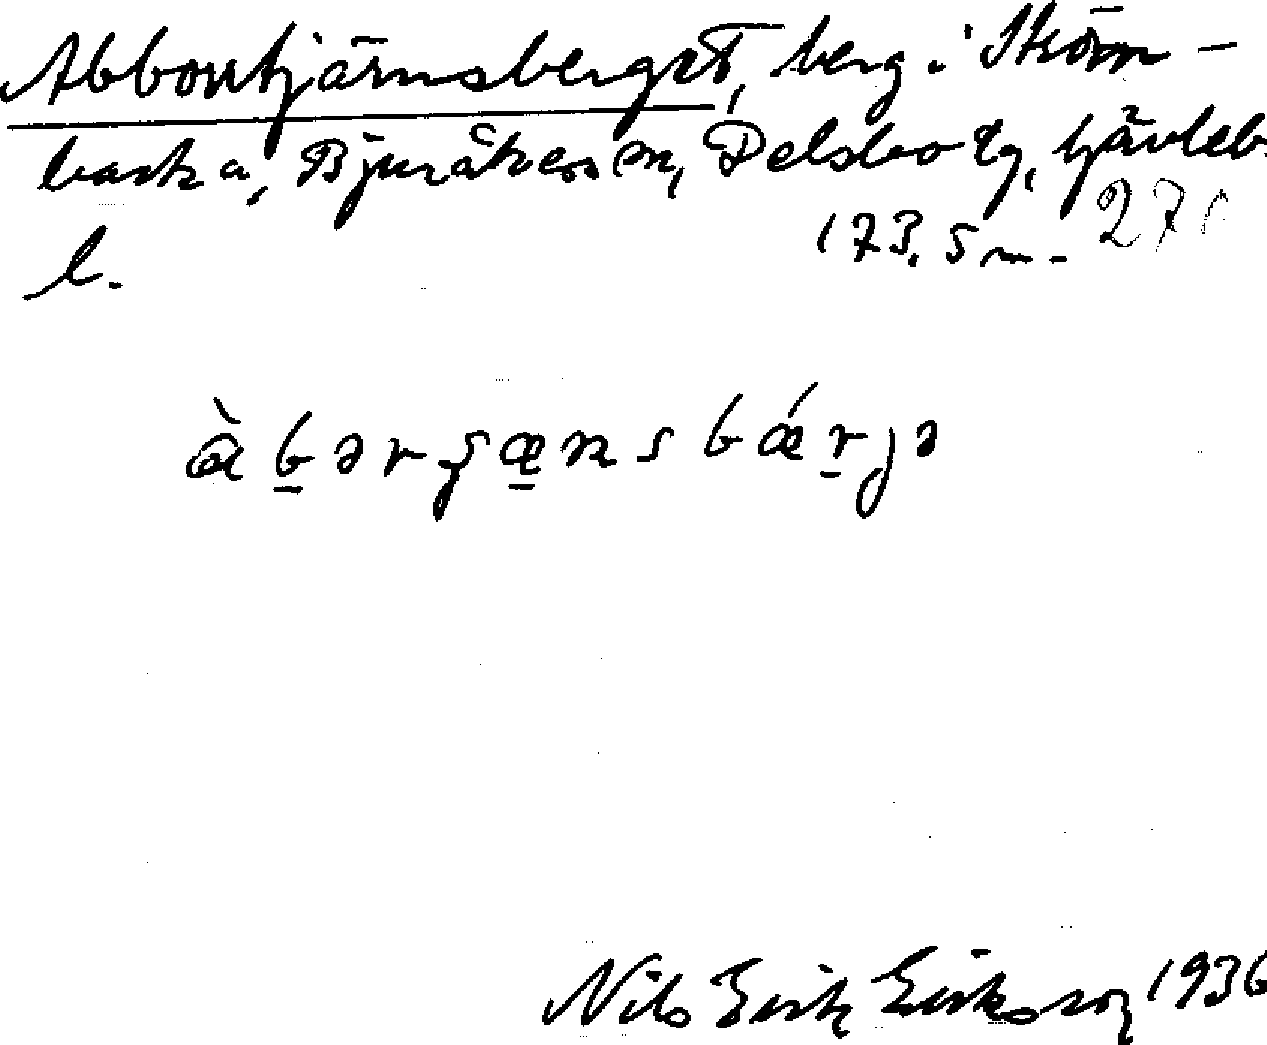 Abbortjärnsberget, berg i Ström-
backa, Bjuråkers sn, Delsbo tg, Gävleb.
l. 173.5 m. 270
à b̲ ə r ʂ æ̲ n s b ǽ r̲ j ə
Nils Erik Eriksson 1936